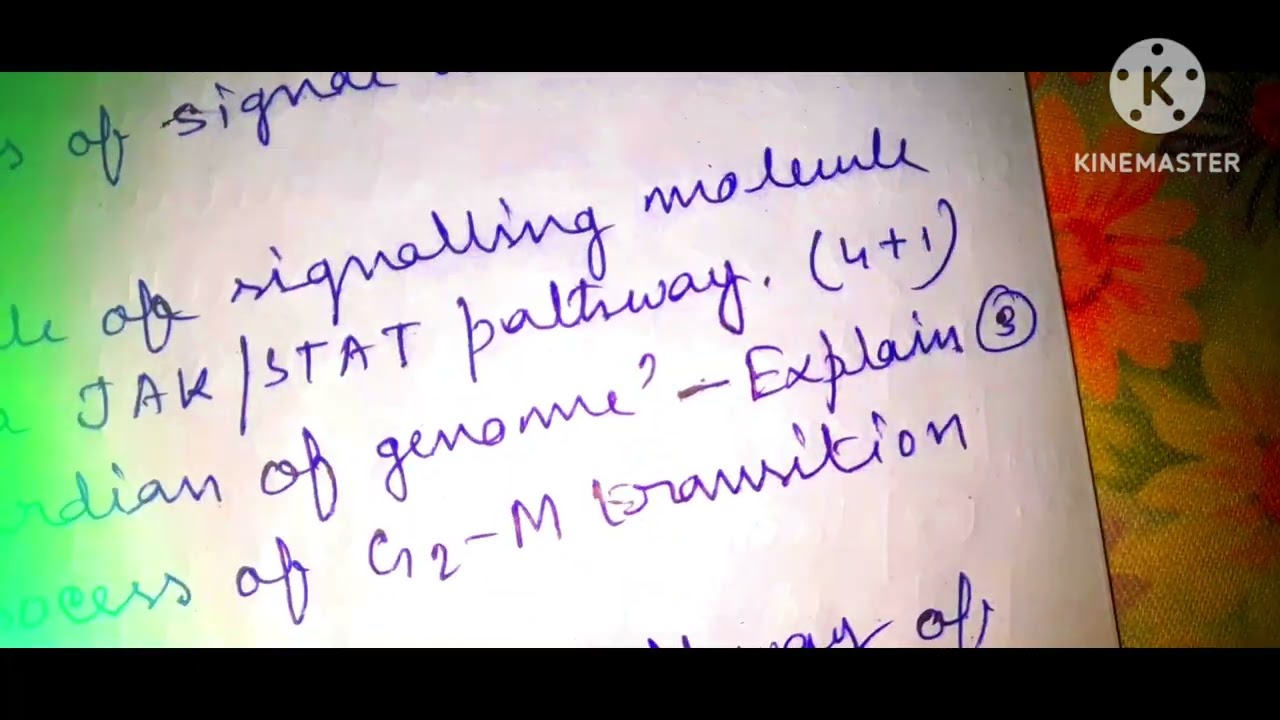 of signal
KINEMASTER
of signalling molecule
JAK/STAT pathway. (4+1)
rdian of genome' - Explain 3
ocess of G2-M transition
way of